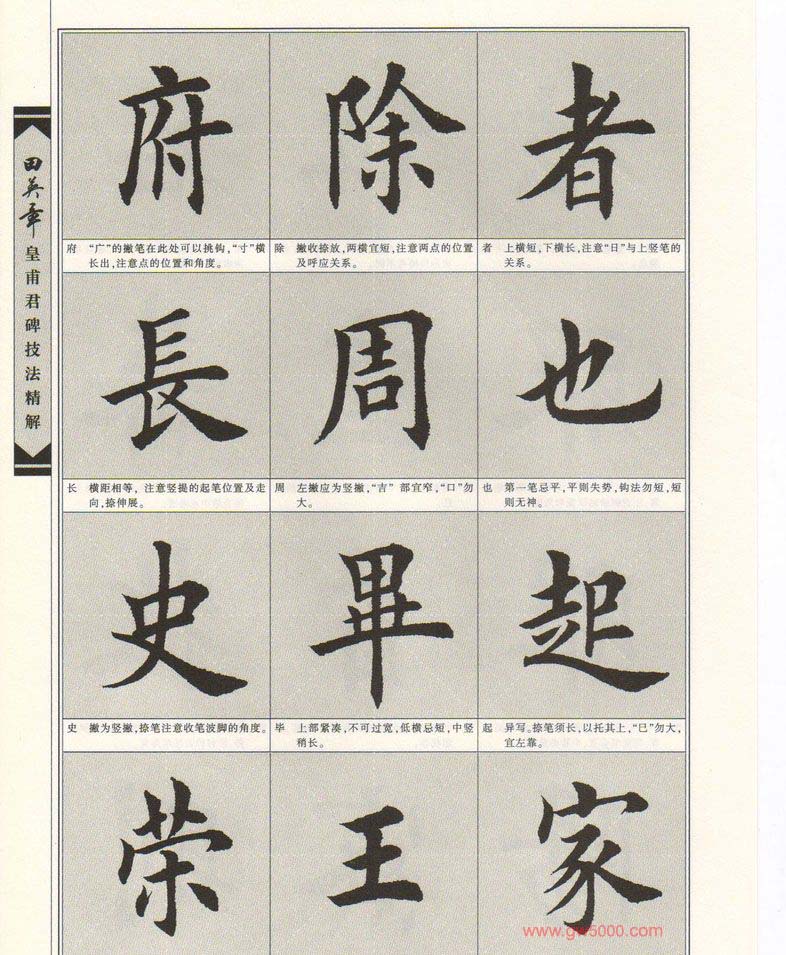 田英章
皇甫君碑技法精解
府 除 者
府 “广”的撇笔在此处可以挑钩，“寸”横
长出，注意点的位置和角度。
除 撇收捺放，两横宜短，注意两点的位置
及呼应关系。
者 上横短，下横长，注意“日”与上竖笔的
关系。
長 周 也
长 横距相等，注意竖提的起笔位置及走
向，捺伸展。
周 左撇应为竖撇，“吉”部宜窄，“口”勿
大。
也 第一笔忌平，平则失势，钩法勿短，短
则无神。
史 畢 起
史 撇为竖撇，捺笔注意收笔波脚的角度。
毕 上部紧凑，不可过宽，低横忌短，中竖
稍长。
起 异写。捺笔须长，以托其上，“巳”勿大，
宜左靠。
荣 王 家
www.gw5000.com